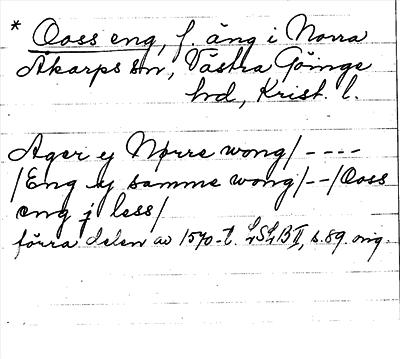 * Qoss eng, f. äng i Norra
Åkarps sn, Västra Göinge
hd, Krist. l.
Ager y Nørre wong/ ----
/Eng y samme wong/--/Qoss
eng j less/
förra delen av 1570-t. LSLB II, s. 89. orig.